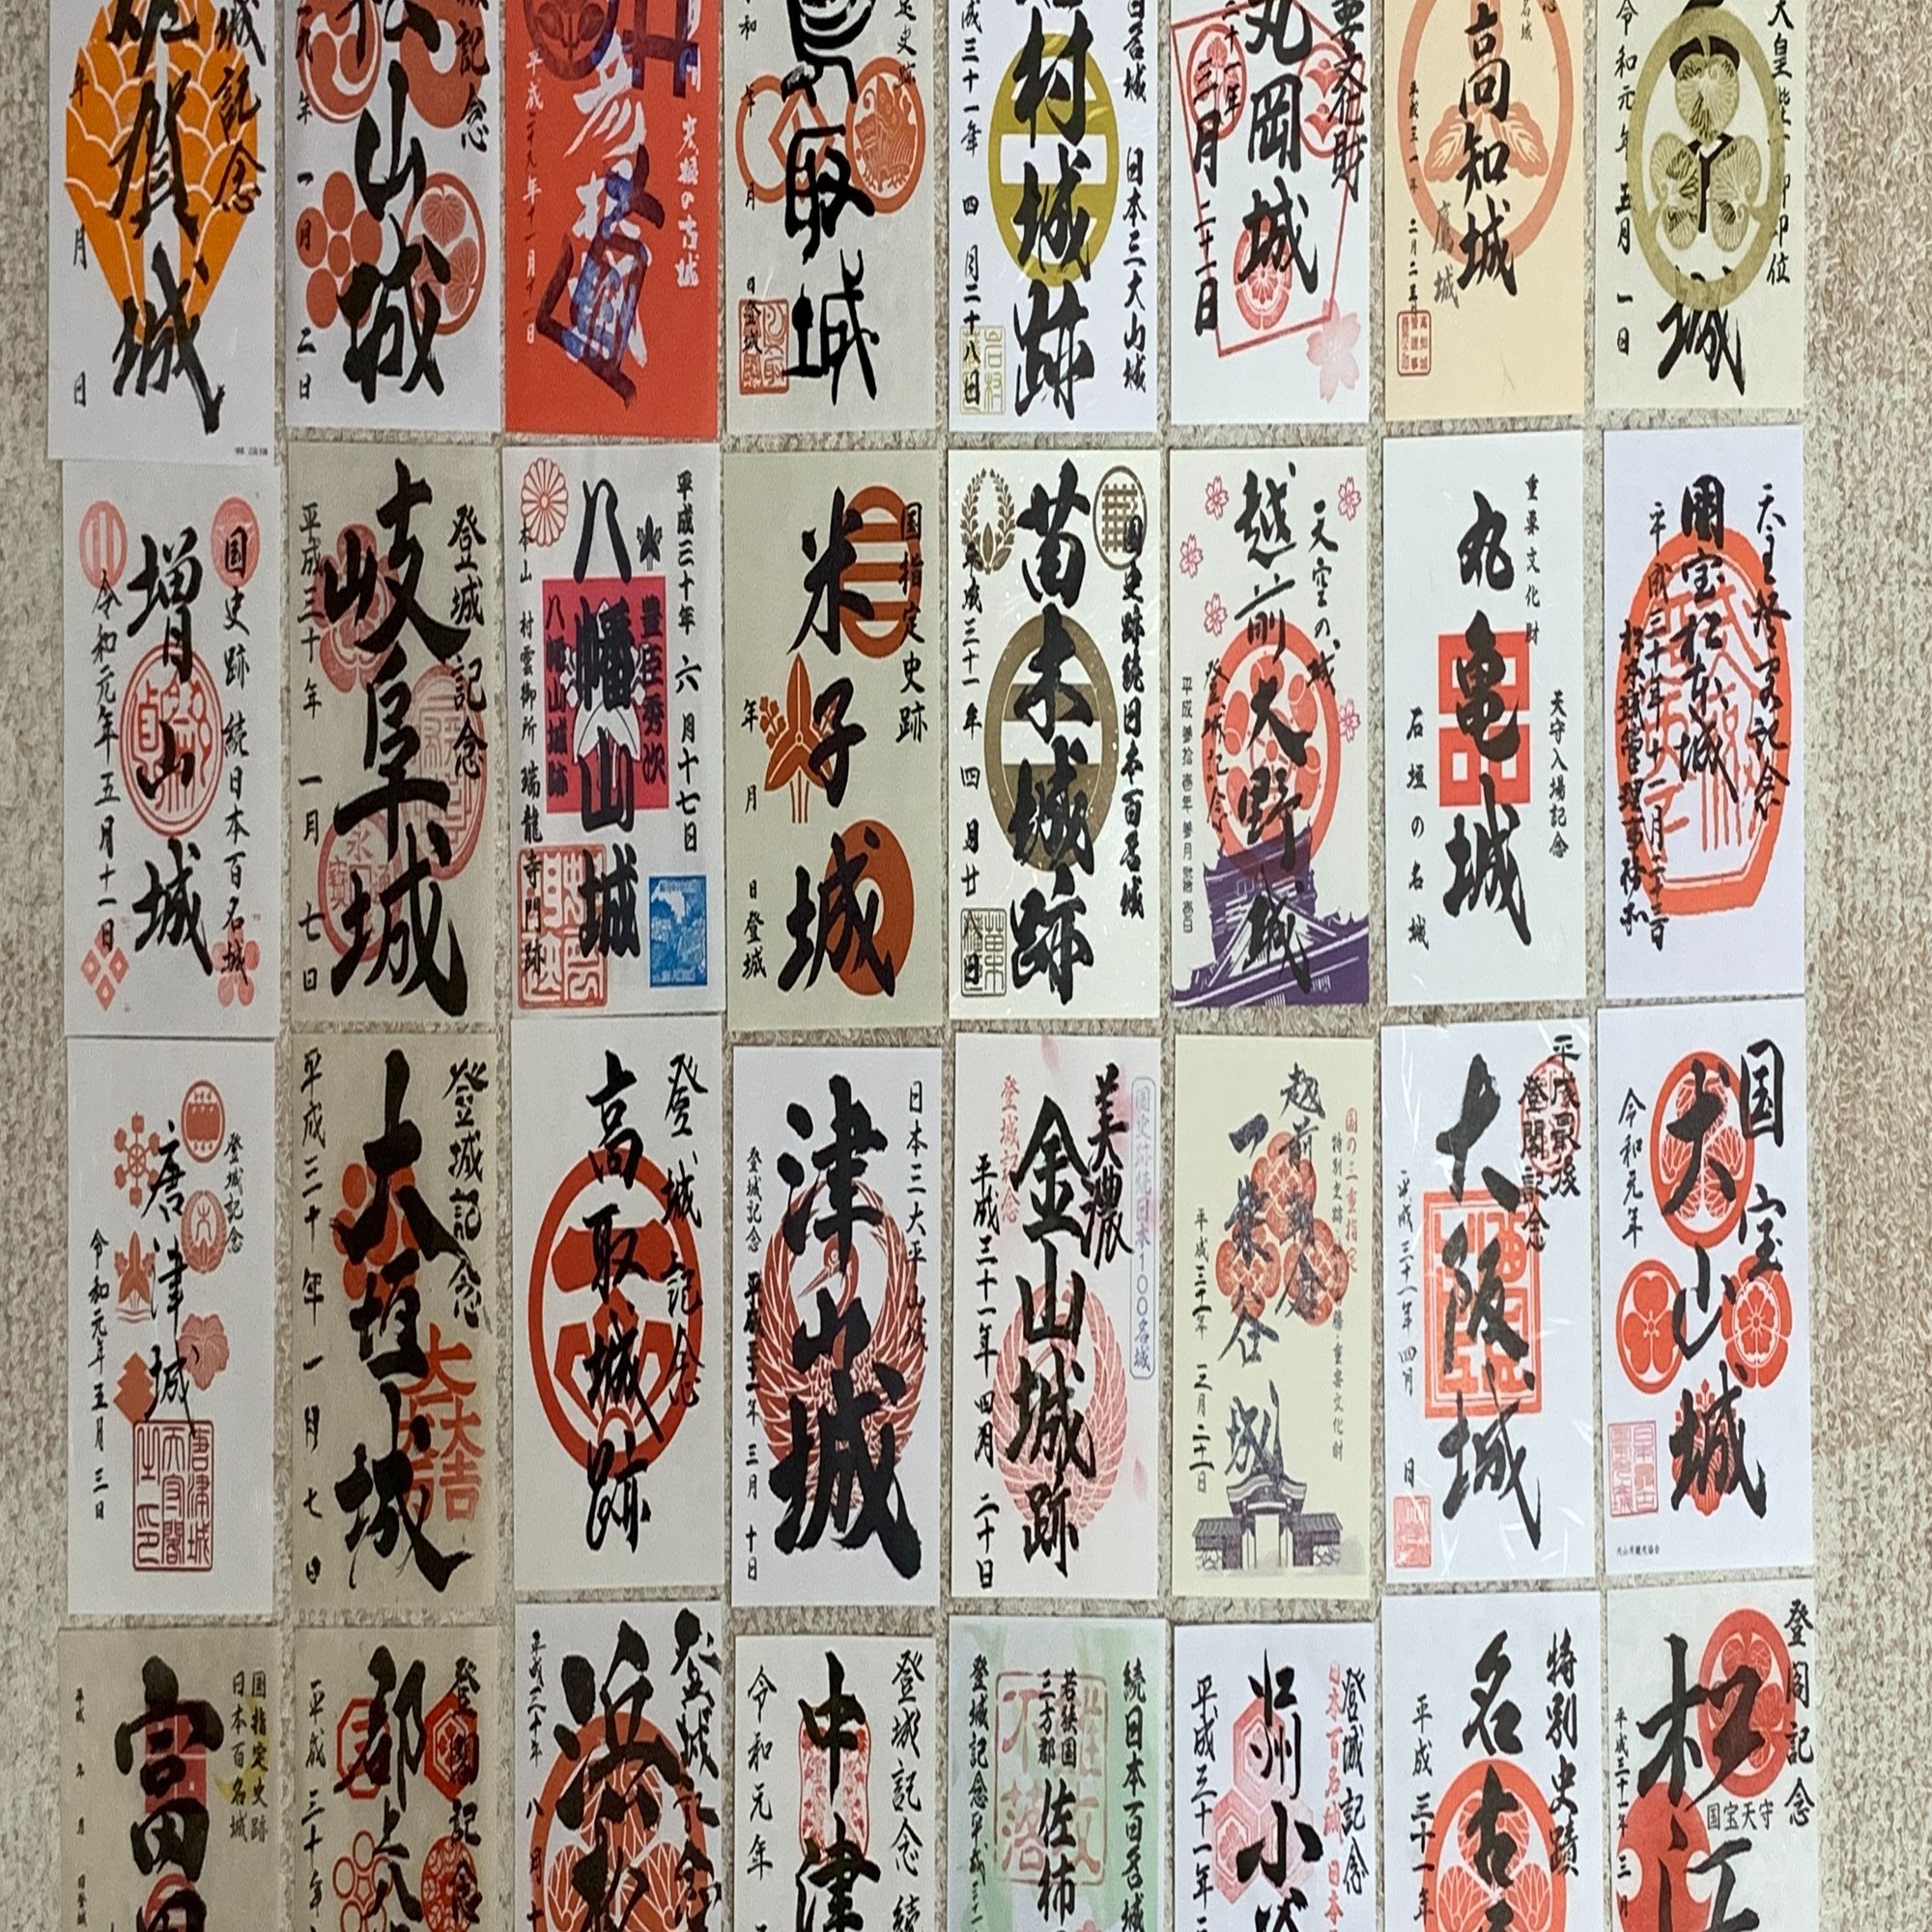 城記念
賀城
年
月
日
記念
松山城
年
一月
二日
続の古城
平成二十九年十一月十一日
鳥取城
年
月
日登城
日本三大山城
村城跡
成三十一年
四月二十八日
重要文化財
丸岡城
三月二十一日
高知城
鷹城
平成三一年
二月二五日
天皇陛下御即位
城
令和元年五月一日
国史跡続日本百名城
増山城
令和元年五月十一日
登城記念
岐阜城
平成三十年一月七日
平成三十年六月十七日
豊臣秀次
八幡山城
八幡山城跡
本山村雲御所瑞龍寺門跡
国指定史跡
米子城
年
月
日登城
国史跡続日本百名城
苗木城跡
平成三十一年四月廿八日
天空の城
越前大野城
登城記念
平成参拾壱年参月弐拾壱日
重要文化財
丸亀城
天守入場記念
石垣の名城
天空登閣記念
国宝松本城
松本城管理事務所
登城記念
唐津城
令和元年五月三日
唐津城天守閣之印
登城記念
大垣城
平成三十年一月七日
登城記念
高取城跡
日本三大平山城
津山城
登城記念
平成三十一年三月十日
国史跡続日本100名城
美濃
金山城跡
登城記念
平成三十一年四月二十日
国の三重指定
越前朝倉
一乗谷城
平成三十一年三月二十一日
平成最後
登閣記念
大阪城
平成三十一年四月
日
国宝
犬山城
令和元年
犬山市観光協会
国指定史跡
日本百名城
富田
平成
年
月
日登城
登閣記念
郡上
平成三十年
登城記念
浜松
平成三十年
八月
登城記念
続
中津
令和元年
続日本百名城
若狭国
三方郡
佐柿
難攻不落
登城記念平成三十一
登城記念
日本百名城
小谷
平成三十一年
特別史蹟
名古屋
平成三十一年
登閣記念
松江
国宝天守
平成三十一年三月